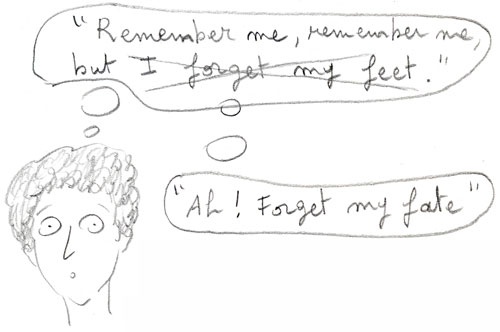 "Remember me, remember me,
but I forget my feet."
"Ah! Forget my fate"